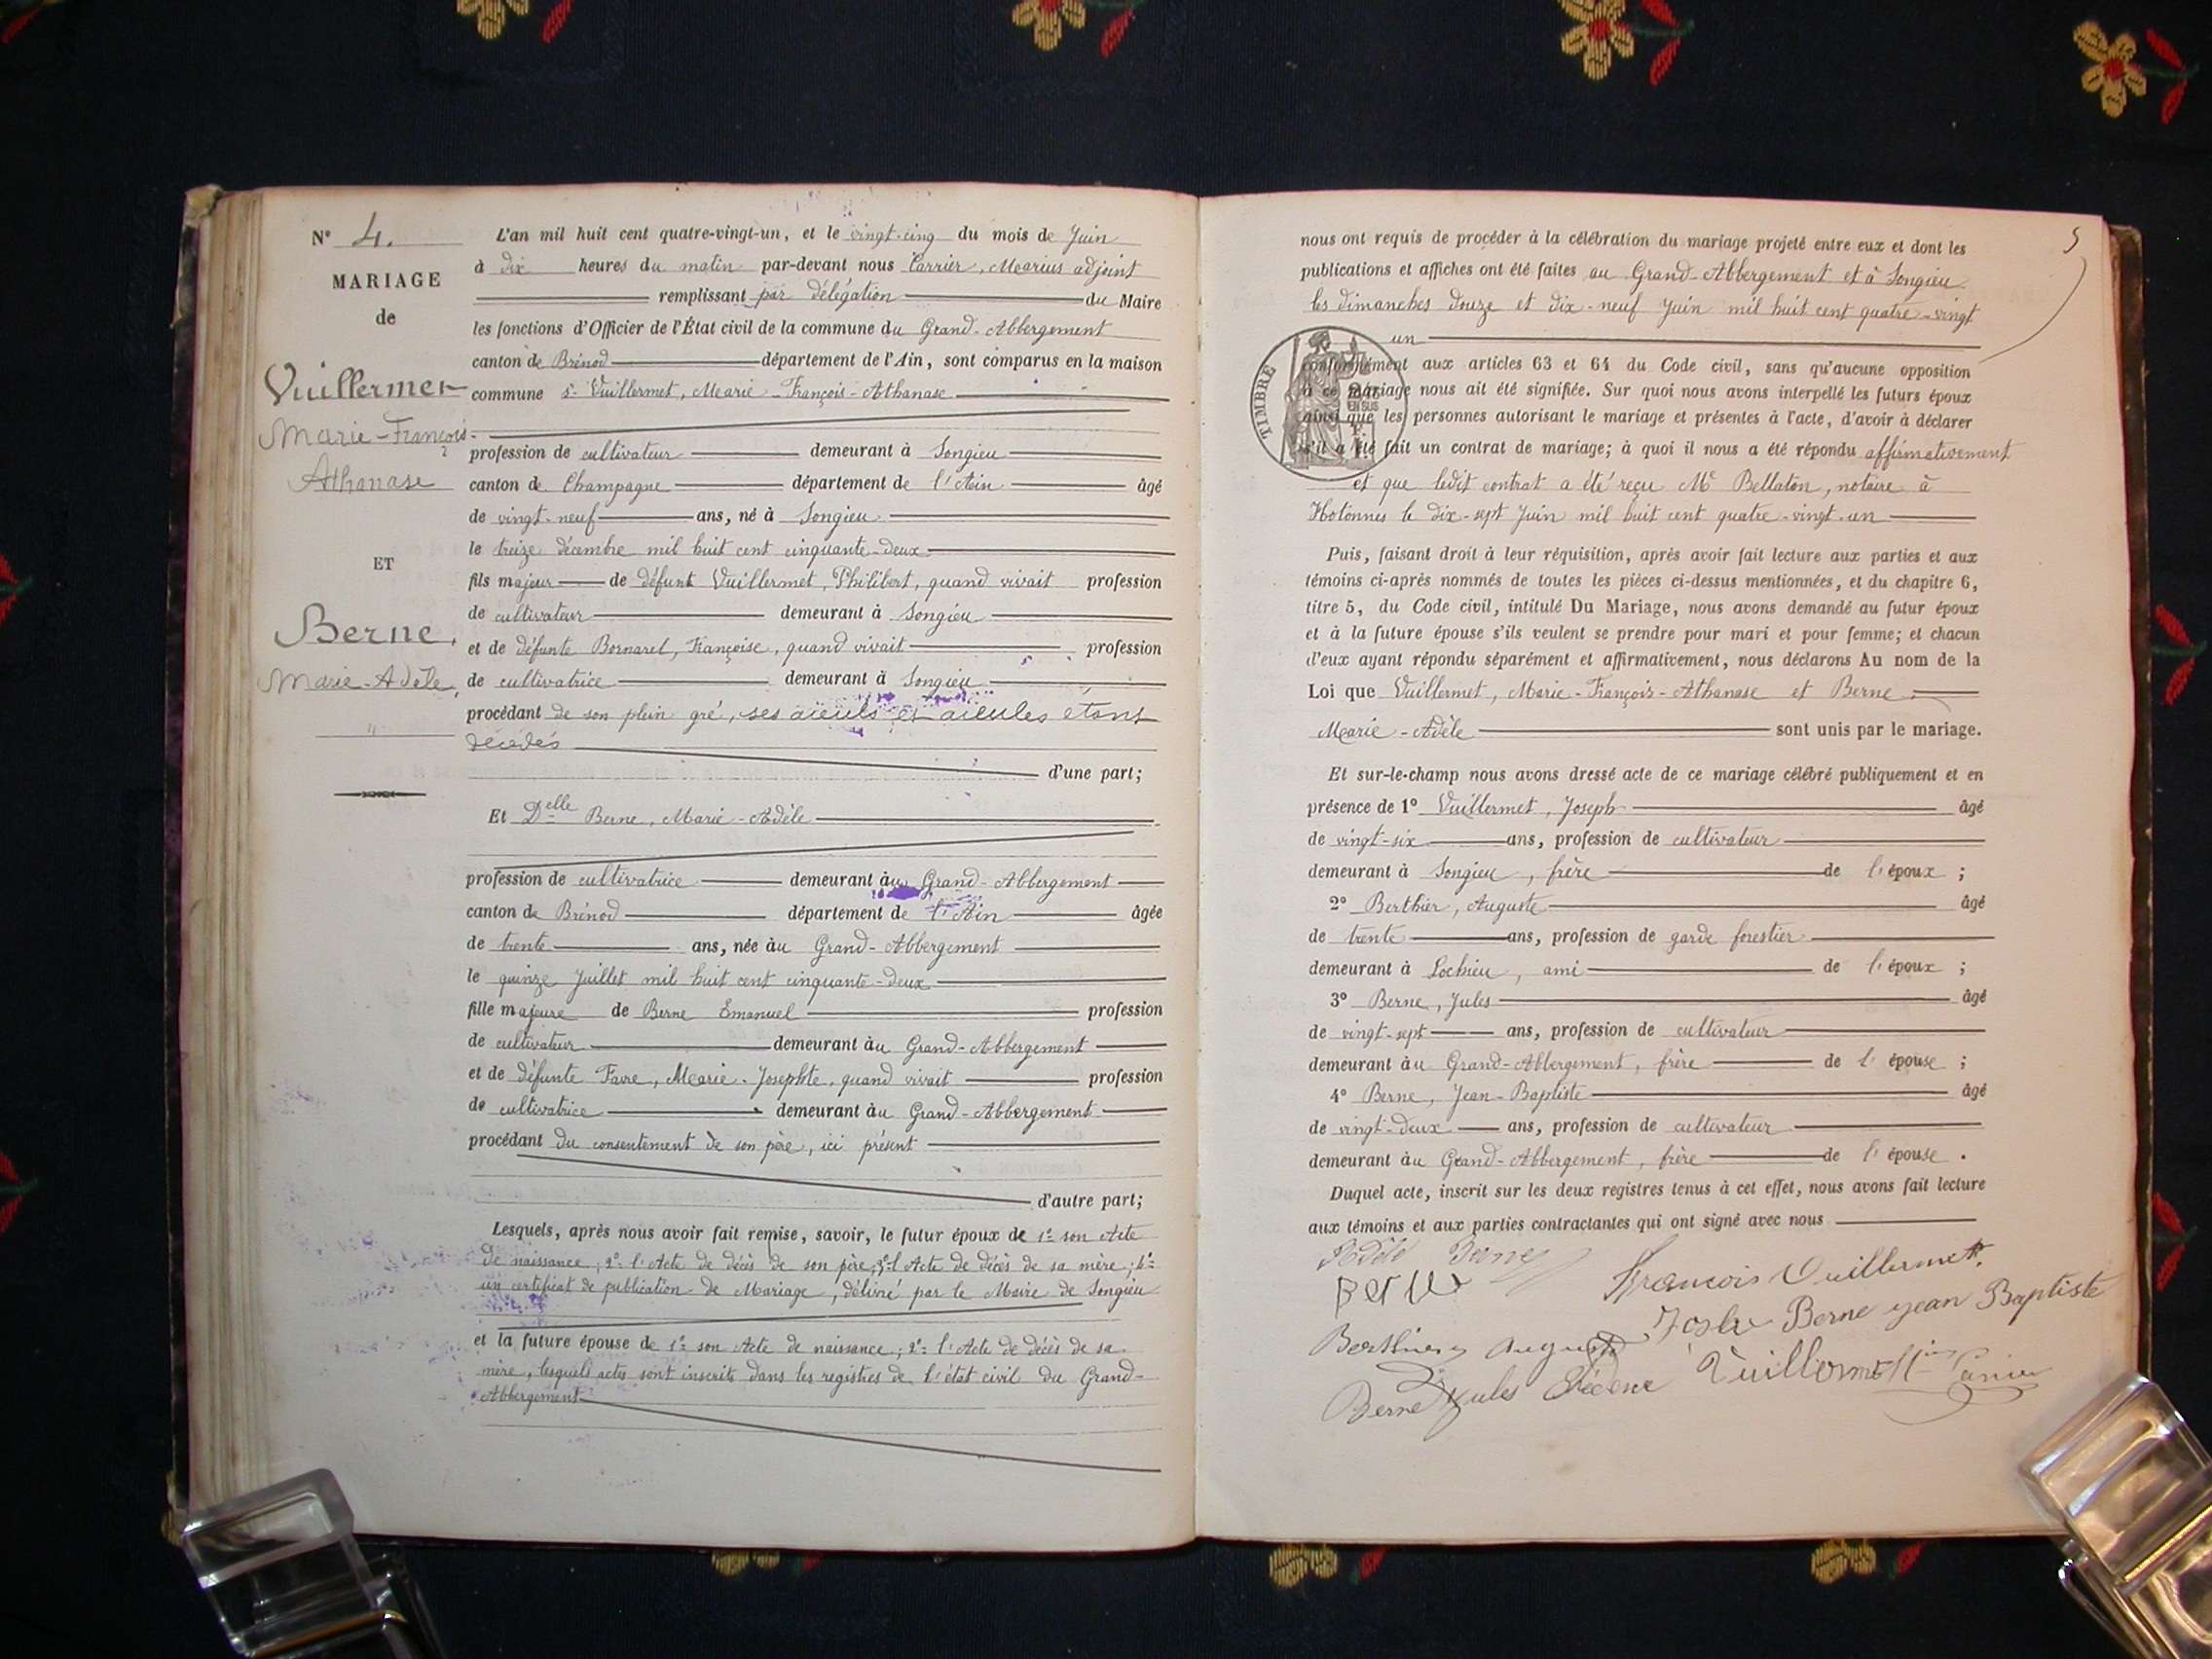 N° 4.
MARIAGE
de
Vuillermet
Marie-François-
Athanase
ET
Berne,
Marie-Adèle,
L'an mil huit cent quatre-vingt-un, et le vingt-cinq du mois de Juin
à dix heures du matin par-devant nous Carrier, Marius adjoint
remplissant par délégation du Maire
les fonctions d'Officier de l'État civil de la commune du Grand-Abbergement
canton de Brénod département de l'Ain, sont comparus en la maison
commune Sr Vuillermet, Marie-François-Athanase
profession de cultivateur demeurant à Songieu
canton de Champagne département de l'Ain âgé
de vingt-neuf ans, né à Songieu
le treize décembre mil huit cent cinquante-deux
fils majeur de défunt Vuillermet, Philibert, quand vivait profession
de cultivateur demeurant à Songieu
et de défunte Bornarel, Françoise, quand vivait profession
de cultivatrice demeurant à Songieu
procédant de son plein gré, ses aïeuls et aïeules étant
décédés
d'une part;
Et Delle Berne, Marie-Adèle
profession de cultivatrice demeurant àu Grand-Abbergement
canton de Brénod département de l'Ain âgée
de trente ans, née àu Grand-Abbergement
le quinze Juillet mil huit cent cinquante-deux
fille majeure de Berne Emanuel profession
de cultivateur demeurant àu Grand-Abbergement
et de défunte Favre, Marie-Josephte, quand vivait profession
de cultivatrice demeurant àu Grand-Abbergement
procédant du consentement de son père, ici présent
d'autre part;
Lesquels, après nous avoir fait remise, savoir, le futur époux de 1° son Acte
de naissance; 2° l'Acte de décès de son père; 3° l'Acte de décès de sa mère; 4°
un certificat de publication de Mariage, délivré par le Maire de Songieu
et la future épouse de 1° son Acte de naissance; 2° l'Acte de décès de sa
mère, lesquels actes sont inscrits dans les registres de l'état civil du Grand-
Abbergement
5
nous ont requis de procéder à la célébration du mariage projeté entre eux et dont les
publications et affiches ont été faites au Grand-Abbergement et à Songieu
les dimanches douze et dix-neuf Juin mil huit cent quatre-vingt
un
TIMBRE
conformément aux articles 63 et 64 du Code civil, sans qu'aucune opposition
à ce mariage nous ait été signifiée. Sur quoi nous avons interpellé les futurs époux
EN SUS
ainsi que les personnes autorisant le mariage et présentes à l'acte, d'avoir à déclarer
s'il a été fait un contrat de mariage; à quoi il nous a été répondu affirmativement
et que ledit contrat a été reçu Me Bellaton, notaire à
Hotonnes le dix-sept Juin mil huit cent quatre-vingt-un
Puis, faisant droit à leur réquisition, après avoir fait lecture aux parties et aux
témoins ci-après nommés de toutes les pièces ci-dessus mentionnées, et du chapitre 6,
titre 5, du Code civil, intitulé Du Mariage, nous avons demandé au futur époux
et à la future épouse s'ils veulent se prendre pour mari et pour femme; et chacun
d'eux ayant répondu séparément et affirmativement, nous déclarons Au nom de la
Loi que Vuillermet, Marie-François-Athanase et Berne
Marie-Adèle sont unis par le mariage.
Et sur-le-champ nous avons dressé acte de ce mariage célébré publiquement et en
présence de 1° Vuillermet, Joseph âgé
de vingt-six ans, profession de cultivateur
demeurant à Songieu, frère de l'époux;
2° Berthier, Auguste âgé
de trente ans, profession de garde forestier
demeurant à Lochieu, ami de l'époux;
3° Berne, Jules âgé
de vingt-sept ans, profession de cultivateur
demeurant àu Grand-Abbergement, frère de l'épouse;
4° Berne, Jean-Baptiste âgé
de vingt-deux ans, profession de cultivateur
demeurant àu Grand-Abbergement, frère de l'épouse.
Duquel acte, inscrit sur les deux registres tenus à cet effet, nous avons fait lecture
aux témoins et aux parties contractantes qui ont signé avec nous
Adèle Berne
François Vuillermet
Berne
Berne jean Baptiste
Berthier Auguste
Vuillermet
Berne Jules
Carrier